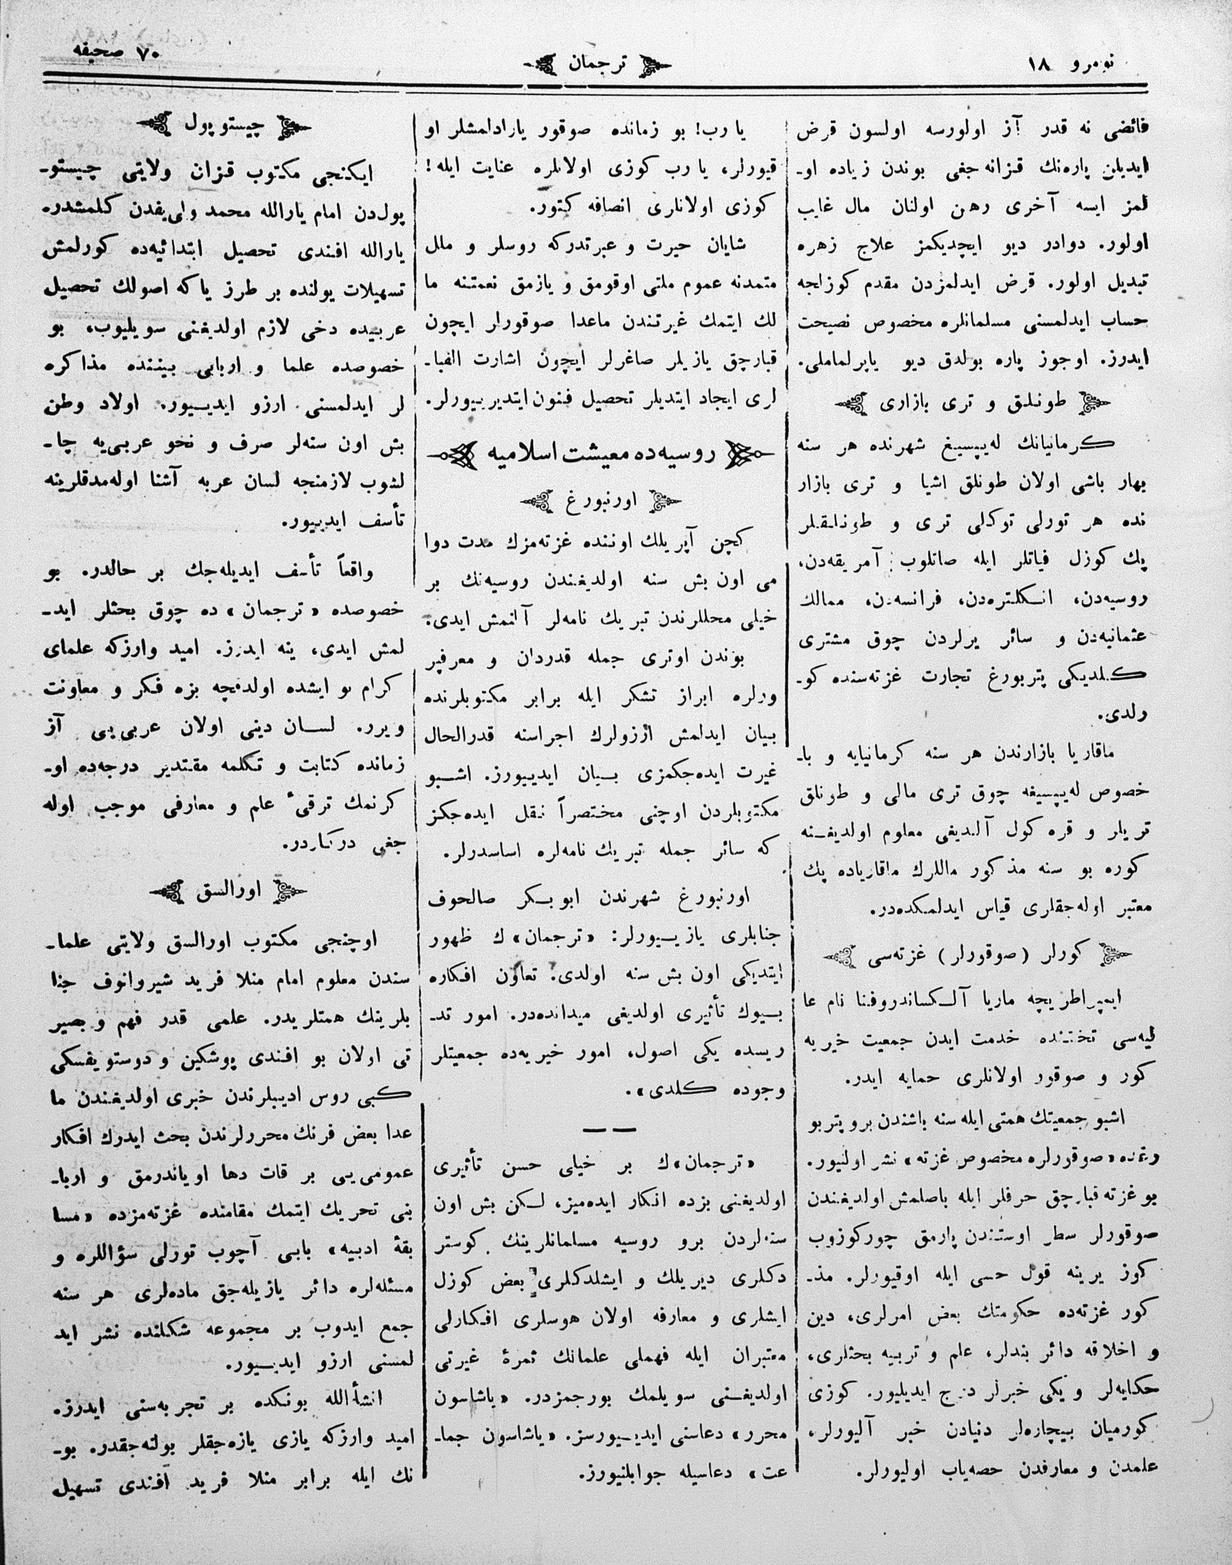 نومرو ١٨
ترجمان
٧٠ صحیفه
فائضی نه قدر آز اولورسه اولسون قرض
ایدیلن پاره‌نك قزانه جغی بوندن زیاده او-
لمز ایسه آخری رهن اولنان مال غایب
اولور. دوادر دیو ایچدیکمز علاج زهره
تبدیل اولور. قرض ایدلمزدن مقدم کوزلجه
حساب ایدلمسنی مسلمانلره مخصوص نصیحت
ایدرز. اوجوز پاره بولدق دیو یاپرلماملی.
طونلق و تری بازاری
کرمانیانك له‌یپسیغ شهرنده هر سنه
بهار باشی اولان طونلق اشیا و تری بازار
نده هر تورلی توکلی تری و طونلقلر
پك کوزل فیاتلر ایله صاتلوب آمریقه‌دن،
روسیه‌دن، انکلتره‌دن، فرانسه‌دن، ممالك
عثمانیه‌دن و سائر یرلردن چوق مشتری
کلدیکی پتربورغ تجارت غزته‌سنده کو-
رلدی.
ماقاریا بازارندن هر سنه کرمانیایه و با-
خصوص له‌یپسیغه چوق تری مالی و طونلق
تریلر و قره کول آلندیغی معلوم اولدیغنه
کوره بو سنه مذکور ماللرك ماقاریاده پك
معتبر اوله‌جقلری قیاس ایدلمکده‌در.
کورلر (صوقورلر) غزته‌سی
ایمپراطریچه ماریا آلکساندروفنا نام عا
لیه‌سی تختنده خدمت ایدن جمعیت خیریه
کور و صوقور اولانلری حمایه ایدر.
اشبو جمعیتك همتی ایله سنه باشندن برو پتربو
رغده «صوقورلره مخصوص غزته» نشر اولنیور.
بو غزته قبارچق حرفلر ایله باصلمش اولدیغندن
صوقورلر سطر اوستندن پارمق چورکوزوب
کوز یرینه قول حسی ایله اوقیورلر. مذ-
کور غزته‌ده حکومتك بعض امرلری، دین
و اخلاقه دائر بندلر، علم و تربیه بحثلری،
حکایه‌لر و یکی خبرلر درج ایدیلیور. کوزی
کورمیان بیچاره‌لر دنیادن خبر آلیورلر،
علمدن و معارفدن حصه‌یاب اولیورلر.
یا رب! بو زمانده صوقور یارادلمشلر او
قیورلر، یا رب کوزی اولانلره عنایت ایله!
کوزی اولانلری انصافه کتور.
شایان حیرت و عبرتدرکه روسلر و ملل
متمدنه عموم ملتی اوقومق و یازمق نعمتنه ما
لك ایتمك غیرتندن ماعدا صوقورلر ایچون
قبارچق یازیلر صاغرلر ایچون اشارت الفبا-
لری ایجاد ایتدیلر تحصیل فنون ایتدیریورلر.
روسیه‌ده معیشت اسلامیه
اورنبورغ
کچن آپریلك اوننده غزته‌مزك مدت دوا
می اون بش سنه اولدیغندن روسیه‌نك بر
خیلی محللرندن تبریك نامه‌لر آلنمش ایدی.
بوندن اوتری جمله قدردان و معرفپر
ورلره ابراز تشکر ایله برابر مکتوبلرنده
بیان ایدلمش آرزولرك اجراسنه قدرالحال
غیرت ایده‌جکمزی بیان ایدییورز. اشبو
مکتوبلردن اوچنی مختصراً نقل ایده‌جکز
که سائر جمله تبریك نامه‌لره اساسدرلر.
اورنبورغ شهرندن ابوبکر صالحوف
جنابلری یازییورلر: «ترجمان»ك ظهور
ایتدیکی اون بش سنه اولدی. تعاون افکاره
بیوك تأثیری اولدیغی میدانده‌در. امور تد-
ریسده یکی اصول، امور خیریه‌ده جمعیتلر
وجوده کلدی».
«ترجمان»ك بر خیلی حسن تأثیری
اولدیغنی بزده انکار ایده‌میز، لکن بش اون
سنه‌لردن برو روسیه مسلمانلرینك کوستر
دکلری دیریلك و ایشلدکلری بعض کوزل
ایشلری و معارفه اولان هوسلری افکارلی
معتبران ایله فهملی علمانك ثمرۀ غیرتی
اولدیغنی سویلمك بورجمزدر. «یاشاسون
محرر» دعاسنی ایدییورسز. «یاشاسون جما-
عت» دعاسیله جوابلنیورز.
چیستوپول
ایکنجی مکتوب قزان ولایتی چیستو-
پول‌دن امام یارالله محمد ولی‌یفدن کلمشدر.
یارالله افندی تحصیل ابتدائیه‌ده کورلمش
تسهیلات یولنده بر طرز یاکه اصولك تحصیل
عربیده دخی لازم اولدیغنی سویلیوب، بو
خصوصده علما و اربابی بیننده مذاکره
لر ایدلمسنی ارزو ایدییور. اولاد وطن
بش اون سنه‌لر صرف و نحو عربی‌یه چا-
لشوب لازمنجه لسان عربه آشنا اوله‌مدقلرینه
تأسف ایدییور.
واقعاً تأسف ایدیله‌جك بر حالدر. بو
خصوصده «ترجمان» ده چوق بحثلر اید-
لمش ایدی، ینه ایدرز. امید وارزکه علمای
کرام بو ایشده اولدقچه بزه فکر و معاونت
ویرر. لسان دینی اولان عربی‌یی آز
زمانده کتابت و تکلمه مقتدیر درجه‌ده او-
کرنمك ترقیٔ علم و معارفی موجب اوله
جغی درکاردر.
اورالسق
اوچنجی مکتوب اورالسق ولایتی علما-
سندن معلوم امام منلا فرید شیروانوف جنا
بلرینك همتلریدر. علمی قدر فهم و بصیر
تی اولان بو افندی پوشکین و دوستویفسکی
کبی روس ادیبلرندن خبری اولدیغندن ما
عدا بعض فرنك محررلرندن بحث ایدرك افکار
عمومی‌یی بر قات دها اویاندرمق و اربا-
بنی تحریك ایتمك مقامنده غزته‌مزده «مسا
بقۀ ادبیه» بابی آچوب تورلی سؤاللره و
مسئله‌لره دائر یازیله‌جق ماده‌لری هر سنه
جمع ایدوب بر مجموعه شکلنده نشر اید
لمسنی ارزو ایدییور.
انشأالله بونکده بر تجربه‌سنی ایدرز.
امید وارزکه یازی یازه‌جقلر بولنه‌جقدر. بو-
نك ایله برابر منلا فرید افندی تسهیل